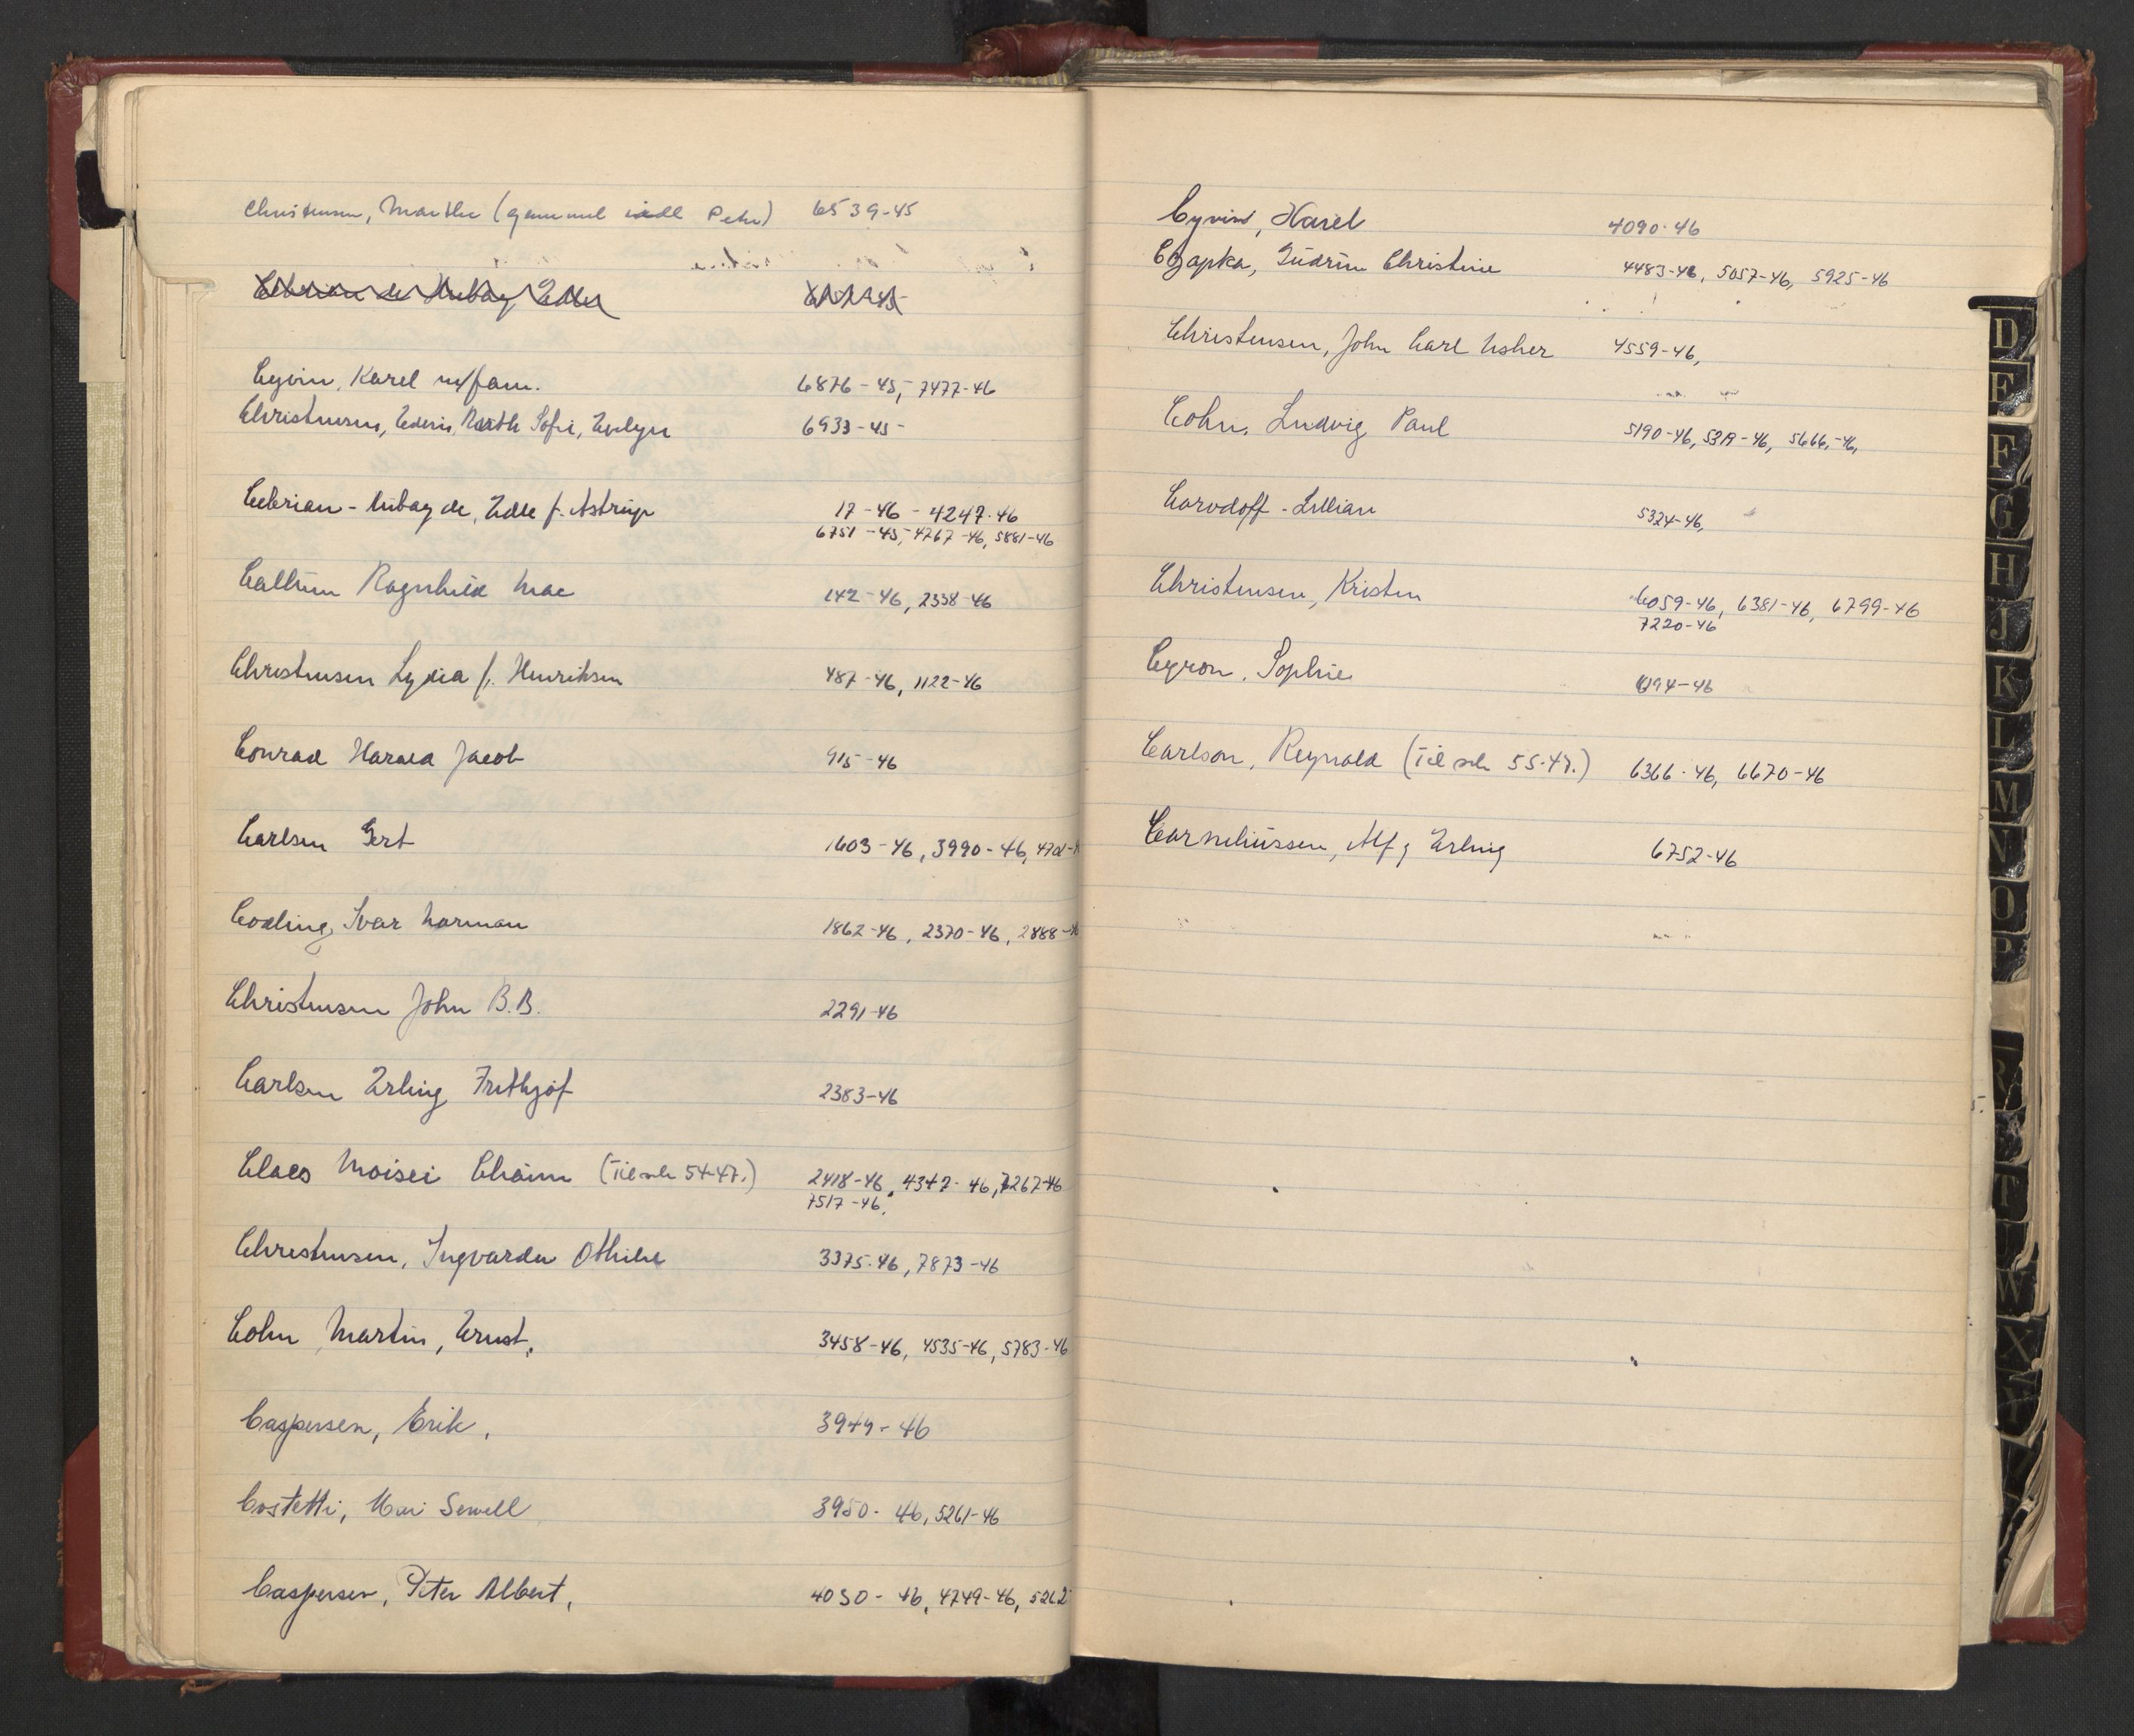 Christensen, Marthe (gammel sedl Petr) 6539-45
Cyvin, Karel m/fam. 6876-45, 7477-46
Christensen, Edvin, Marth Sofie, Evelyn 6933-45
Cebrian-Mibay de, Edle f. Astrup 17-46 - 4247-46
6751-45, 4767-46, 5881-46
Callum Ragnhild Mac 142-46, 2338-46
Christensen Lydia f. Henriksen 487-46, 1122-46
Conrad Harald Jacob 915-46
Carlsen Gert 1603-46, 3990-46,
Codling, Ivar Norman 1862-46, 2370-46, 2888-46
Christensen John B.B. 2291-46
Carlsen Erling Frithjof 2383-46
Claes Moisei Chaim (Tilsvh 54-47.) 2418-46, 4347-46, 7267-46
7517-46,
Christensen, Ingvarda Othilie 3375-46, 7873-46
Cohn Martin, Ernst, 3458-46, 4535-46, 5783-46
Caspersen, Erik, 3949-46
Costetti, Mai Sewell 3950-46, 5261-46
Caspersen, Peter Albert, 4030-46, 4749-46, 5262
Cyvin, Karel 4090-46
Czapka, Gudrun Christine 4483-46, 5057-46, 5925-46
Christensen, John Carl Usher 4559-46,
Cohn, Ludvig Paul 5190-46, 5319-46, 5666-46,
Corvdoff-Lillian 5324-46,
Christensen, Kristen 6059-46, 6381-46, 6799-46
7220-46
Cyron, Sophie 6194-46
Carlson, Reynold (Tilsvh 55-47.) 6366-46, 6670-46
Corneliussen, Alf, Erling 6752-46
D
E
F
G
H
J
K
L
M
N
O
P
R
S
T
U
W
X
Y